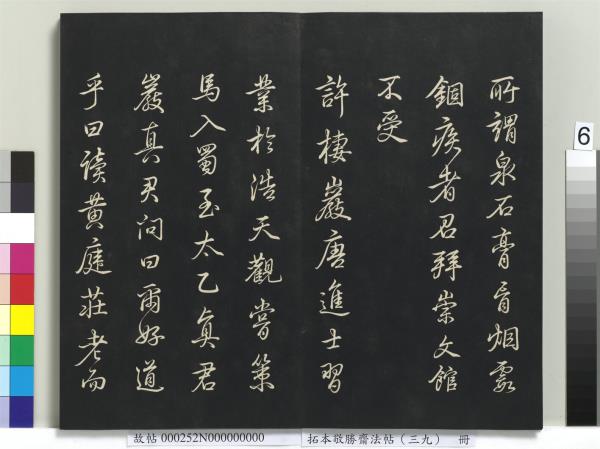 所謂泉石膏肓烟霞
錮疾者召拜崇文館
不受
許棲巖唐進士習
業於浩天觀嘗策
馬入蜀至太乙真君
巖真君问曰爾好道
乎曰读黄庭莊老而
6
故帖 000252N000000000
拓本敬勝齋法帖（三九） 冊